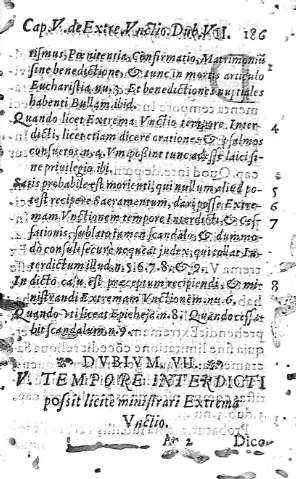 Cap. V. de Extre. Vnctio. Dub. VII. 186
rismus, Pœnitentia, Confirmatio, Matrimoniũ
sine benedictione, & tunc in mortis articulo
Eucharistia nu. 3. Et benedictiones nuptiales
habenti Bullam. ibid.
Quando licet Extrema Vnctio tempore Inter- 4
dicti, licet etiam dicere orationes & psalmos
consuetos n. 4. Vm possint tunc adesse laici si-
ne privilegio. ibi.
Satis probabile est morienti, qui nullum aliud po- 5
test recipere Sacramentum, dari posse Extre- 6
mam Vnctionem tempore Interdicti, & Ces- 7
sationis, sublato tamen scandalo, & dummo-
do consuli secure nequeat iudex, qui tollat In-
terdictum illud. n. 5. 6. 7. 8. & 9.
In dicto casu, est præceptum recipiendi, & mi- 8
nistrandi Extremam Vnctionem. nu. 6.
Quando uti liceat Epicheja n. 8. Quando cessa-
bit scandalum. n. 9.
DVBIVM VII.
V. TEMPORE INTERDICTI
possit licite ministrari Extrema
Vnctio.
Aa 2 Dico